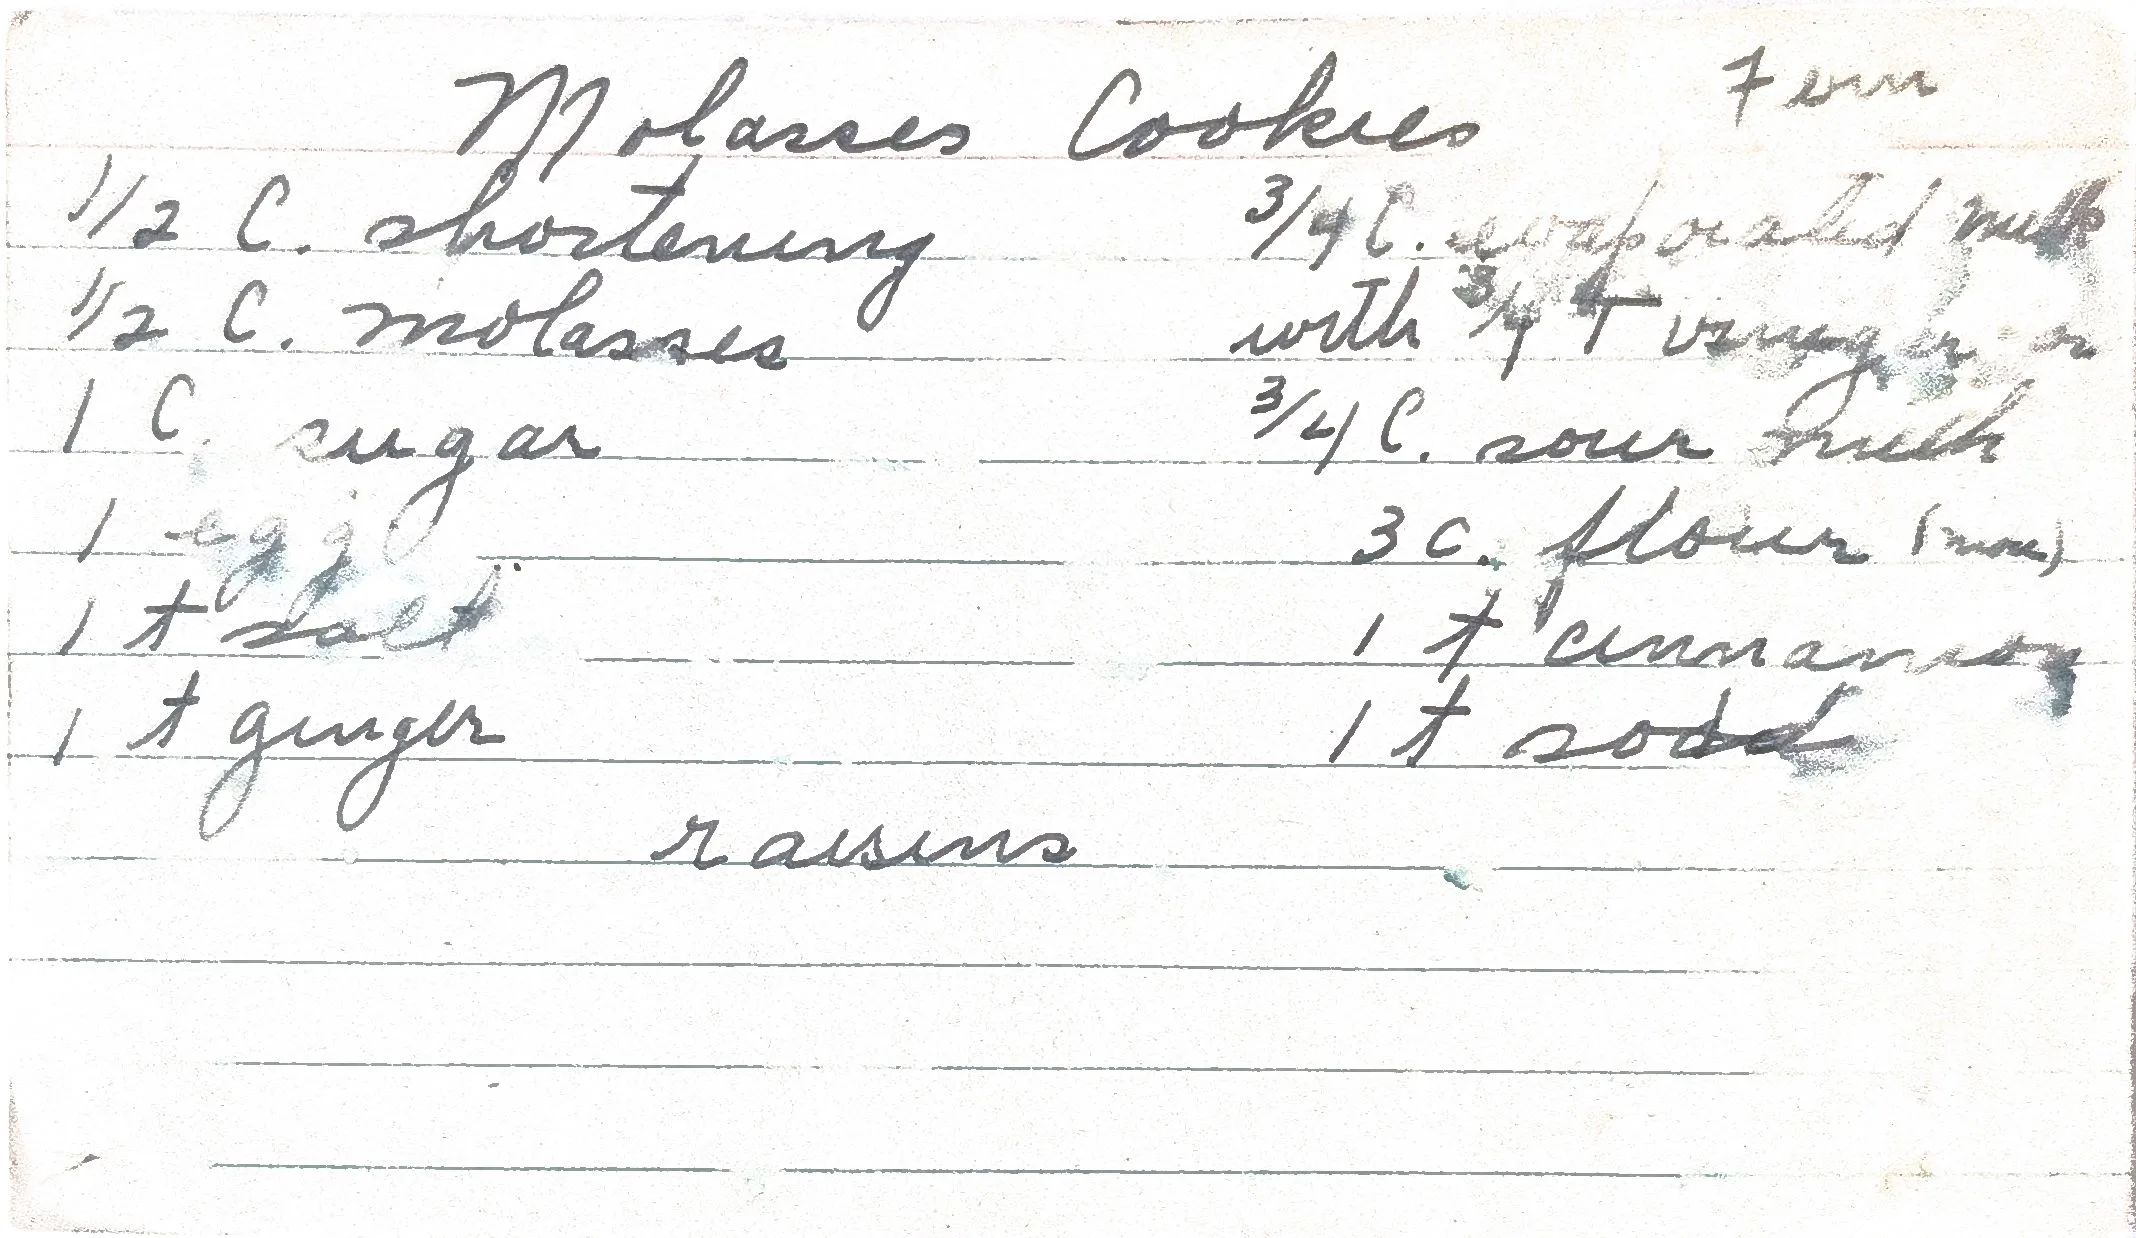 Molasses Cookies
Fern
1/2 C. shortening
1/2 C. molasses
1 C. sugar
1 egg
1 t salt
1 t ginger
3/4 C. evaporated milk
with 3/4 T vinegar or
3/4 C. sour milk
3 C. flour (more)
1 t cinnamon
1 t soda
raisins